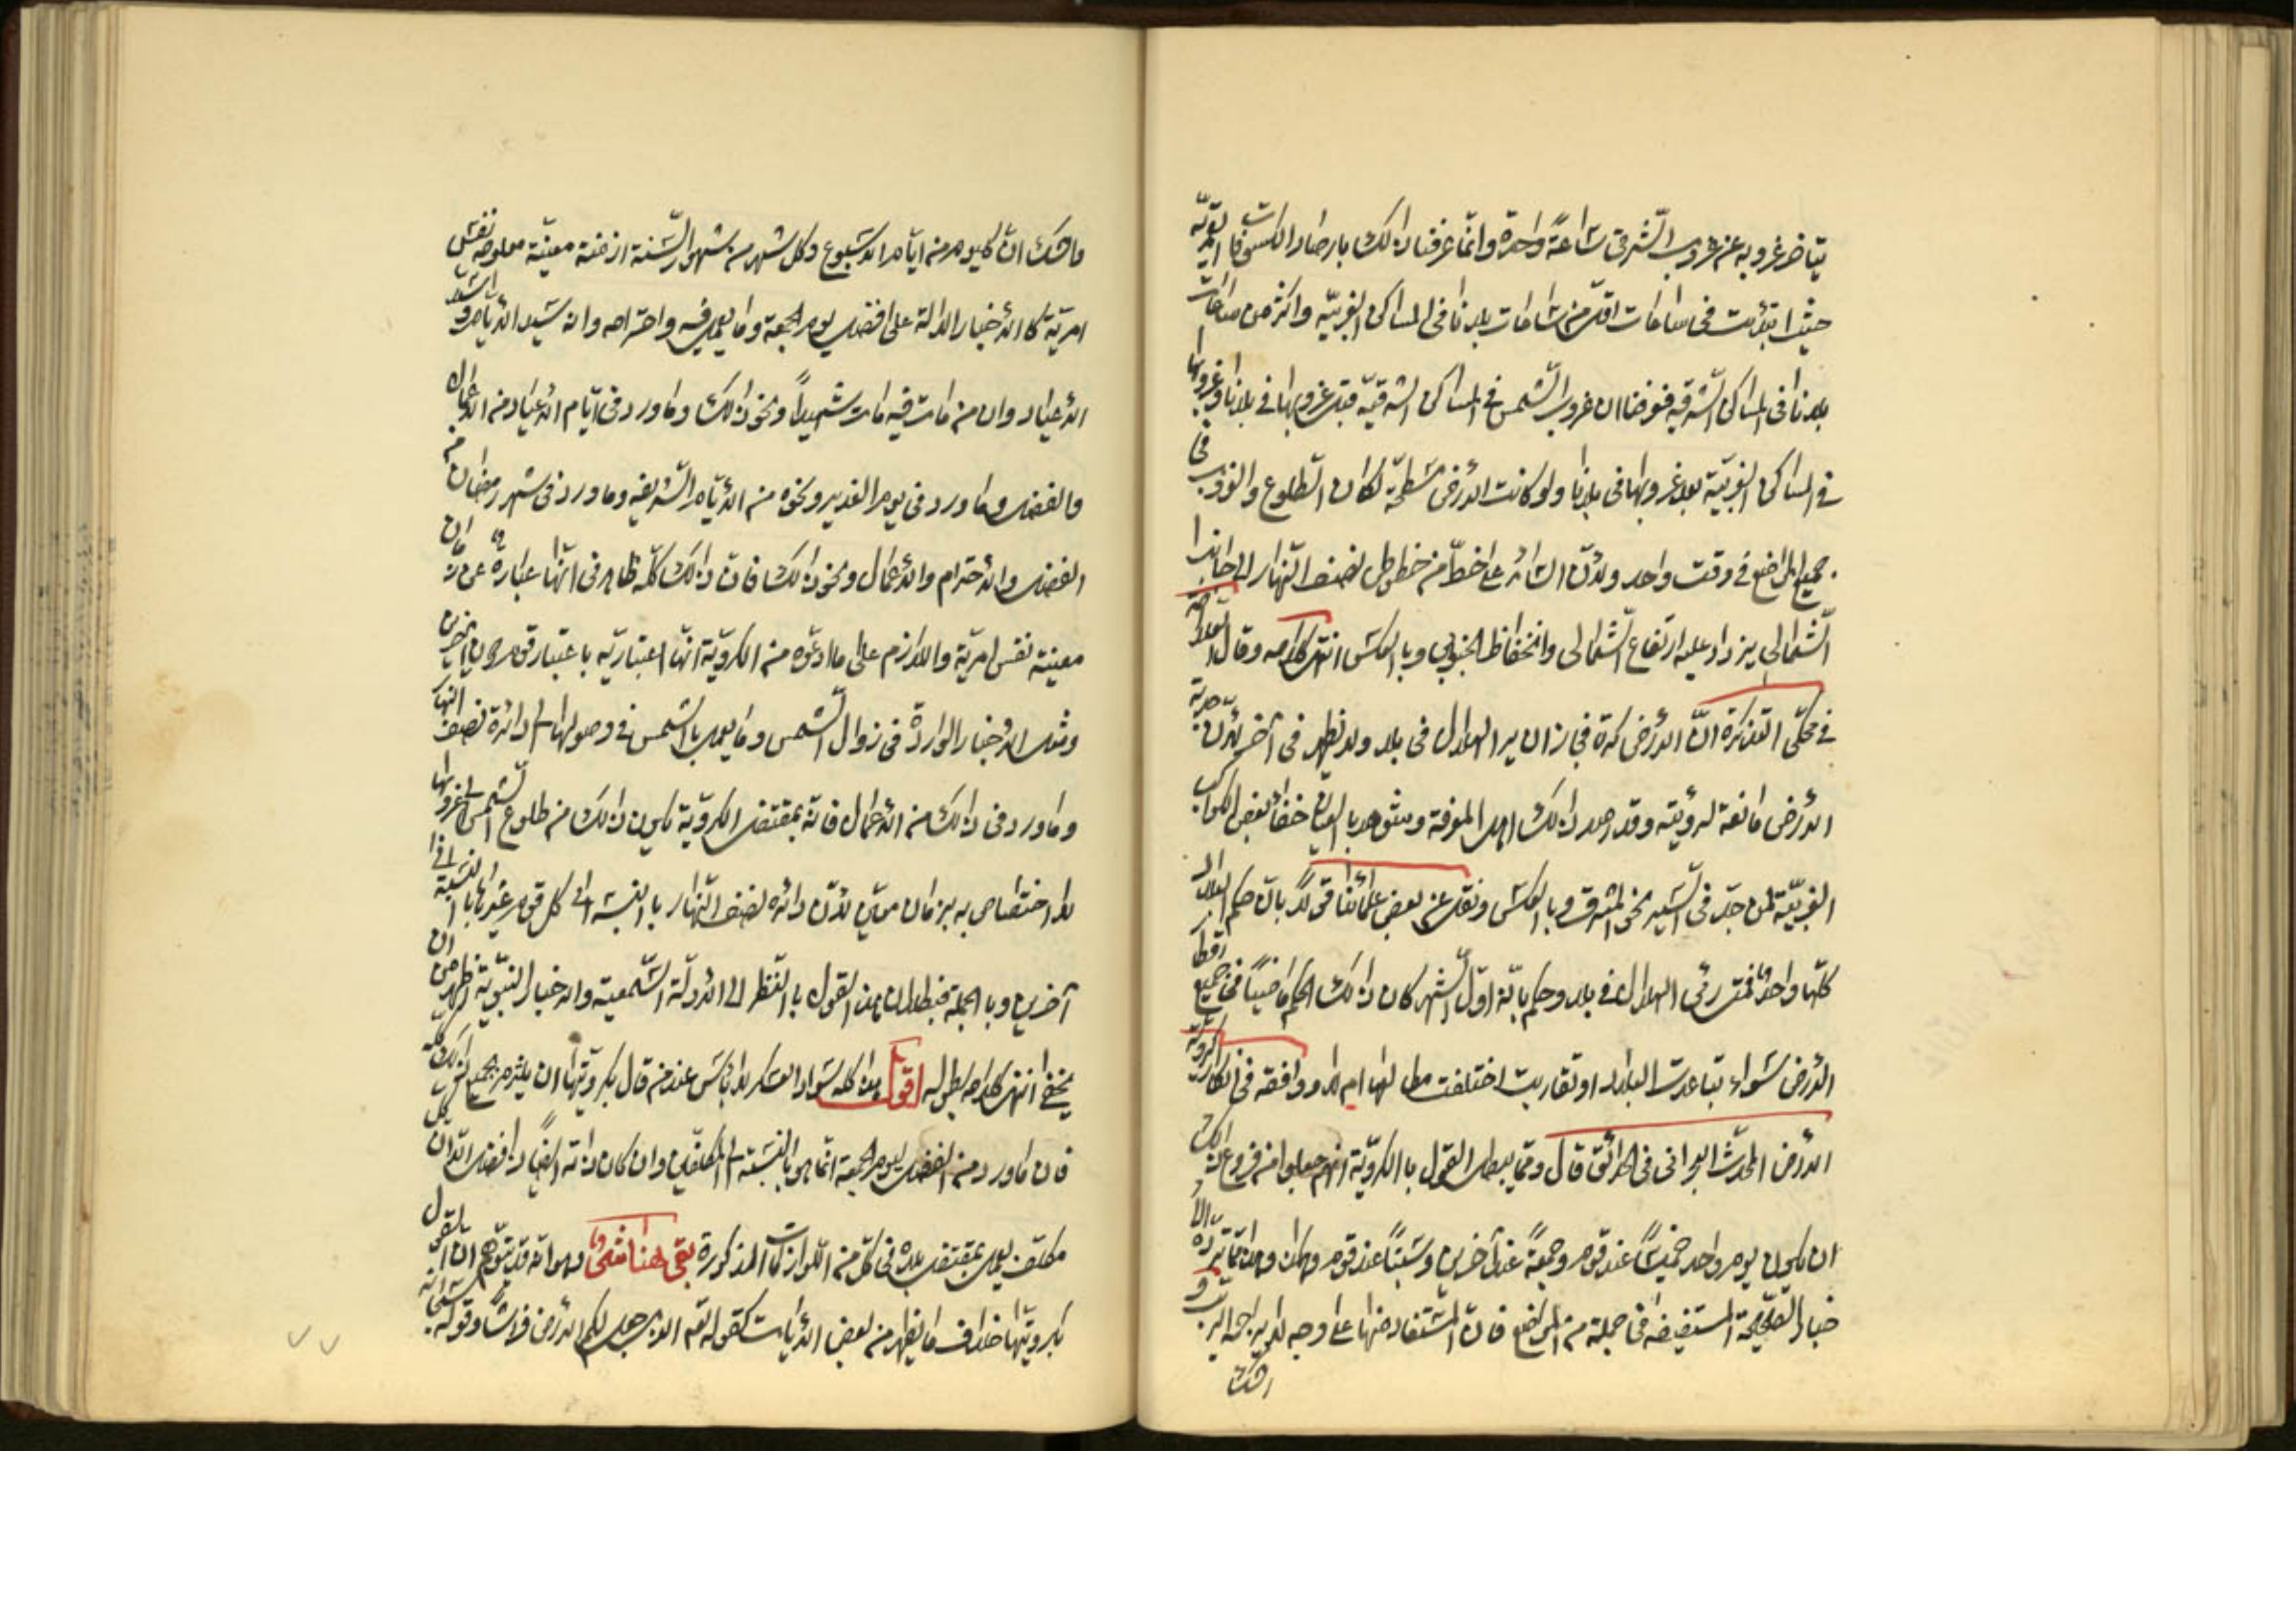 يتأخر غروبه عن غروب الشرقي ساعة واحدة وانما عرفنا ذالك بارصاد الكسوفات القمرية
حيث ابتدئت في ساعات اقل من ساعات بلدنا في المساكن الغربيّه واكثر من ساعات
بلدنا في المساكن الشرقيه فعرفنا ان غروب الشمس في المساكن الشرقيّه قبل غروبها في بلدنا وغروبها
في المساكن الغربيّة بعد غروبها في بلدنا ولو كانت الأرض مسطحّة لكان الطلوع والغروب في
جميع المواضع في وقت واحد ولأنّ السائر على خط من خطوط نصف النهار الى جانب
الشمالي يزداد عليه ارتفاع الشمالي وانخفاظ الجنوبي وبالعكس انتهى كلامه وقال
في محكى التذكرة انّ الأرض كرة فجاز ان يرا الهلال في بلد ولا يظهر في آخر لأنّ حدبة
الأرض مانعة لرؤيته وقد رصد ذالك اهل المعرفة وشوهد بالعيان خفاء بعض الكواكب
الغربيّة لمن جدّ في السير نحو المشرق وبالعكس ونقل عن بعض علمائنا قولا بانّ حكم البلاد
كلّها واحد فمتى رئى الهلال في بلد وحكم بانّه اوّل الشهر كان ذالك الحكم ماضيًا في جميع اقطار
الأرض سواء تباعدت البلاد او تقاربت اختلفت مطالعها ام لا ووافقه في انكار كرويّة
الأرض المحدّث البحراني في الحدائق قال وممّا يبطل القول بالكرويّة انهم جعلوا من فروع ذالك
ان يكون يوم واحد خميسًا عند قوم وجمعةً عند آخرين وسبتًا عند قوم وهكذا وهذا ممّا تردّه الأ
خبار الصحيحة المستفيضه في جملة من المواضع فان المستفاد منها على وجه لا يزاحمه الريب و
الشك
ماشك ان كل يوم من ايام الأسبوع وكل شهر من شهور السّنة ازمنة معيّنة معلومة نفس
امريّة كالأخبار الدالة على افضل يوم الجمعة وما يعمل فيه واحترامه وانه سيد الأيام و
الأعياد وان من مات فيه مات شهيداً ونحو ذالك وما ورد في ايّام الأعياد من الأعمال
والفضل وما ورد في يوم الغدير ونحوه من الأيّام الشريفه وما ورد في شهر رمضان من
الفضل والأحترام والأعمال ونحو ذالك فان ذالك كلّه ظاهر في انّها عبارة عن ازمان
معينة نفس امريّة واللازم على ما ادعّوه من الكرويّة انّها اعتباريّه باعتبار قوم دون آخرين
ومثل الأخبار الواردة في زوال الشمس وما يعمل بالشمس في وصولها الى دائرة نصف النهار
وما ورد في ذالك من الأعمال فانّه بمقتضى الكرويّة يكون ذالك من طلوع الشمس الى غروبها
لا اختصاص به بزمان معيّن لأنّ دائرة نصف النهار بالنسبة الى كل قوم غيرها بالنسبة الى
آخرين وبالجملة فبطلان هذا القول بالنّظر الى الأدلّة السّمعية والأخبار النبويّة اظهر من ان
يخفى انتهى كلامه بطوله اقول هذا كله سواد العسكر لا باس عند من قال بكرويّتها ان يلتزم بجميع ذالك كله
فان ما ورد من الفضل ليوم الجمعة انّما هو بالنسبة الى المكلّفين وان كان ذاته ايضًا ذا فضل الّا ان كل
مكلّف يعمل بمقتضى بلده في كل من اللوازمات المذكورة بقى هنا شئ وهو انّه قد يتوّهم ان القول
بكرويّتها خلاف ما يظهر من بعض الأيات كقوله تعم الذي جعل لكم الأرض فراشًا وقوله